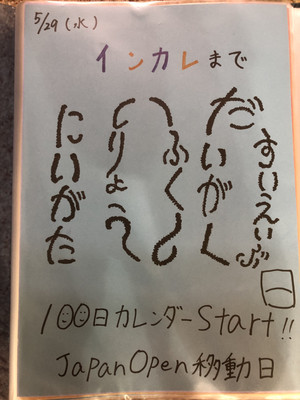 5/29(水)
インカレまで
にいがた
いりょう
ふくし
だいがく
すいえいぶ
100日カレンダーStart!!
JapanOpen移動日